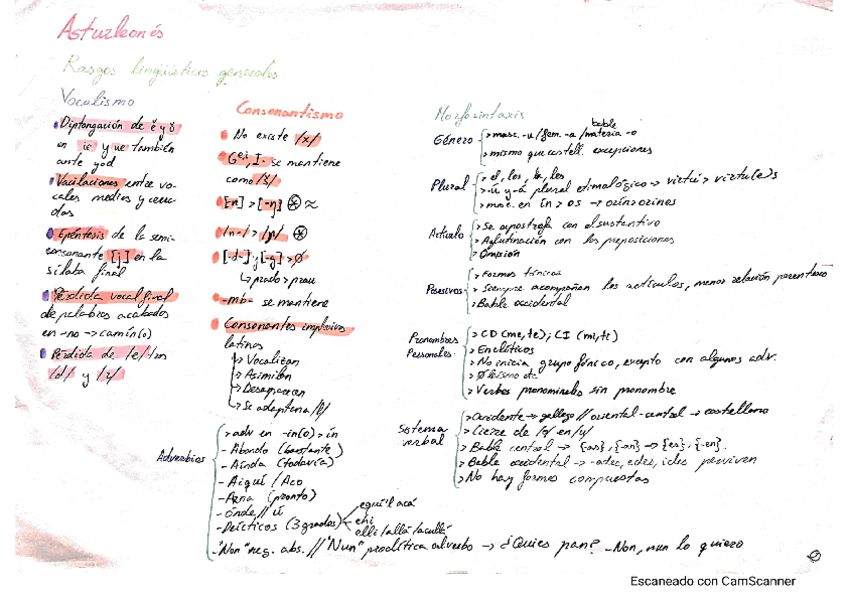 Asturleonés
Rasgos lingüísticos generales
Vocalismo
Diptongación de ĕ y ŏ
en ie y ue también
ante yod
Vacilaciones entre vo-
cales medias y cerra-
das
Epéntesis de la semi-
consonante [j] en la
sílaba final
Pérdida vocal final
de palabras acabadas
en -no -> camín(o)
Pérdida de /e/ tras
/d/ y /z/
Consonantismo
No existe /x/
G e,i, I- se mantiene
como /š/
[-n] > [-ŋ] ≈
/n-/ > /ɲ/
[-d-] y [-g-] > ø
↳ prado > prau
-mb- se mantiene
Consonantes implosivas
latinas
> Vocalizan
> Asimilan
> Desaparecen
> Se adapta a /l/
Morfosintaxis
bable
Género > masc. -u / fem. -a / materia -o
> mismo que castell. excepciones
Plural > el, los, la, les
> -ú y -á plural etimológico -> virtú > virtu(e)s
> masc. en ín > os ->
Artículo > Se apostrofa con el sustantivo
> Aglutinación con las preposiciones
> Omisión
Posesivos > Formas tónicas
> Siempre acompañan los artículos, menos relación parentesco
> Bable occidental
Pronombres
Personales > CD (me, te); CI (mi, ti)
> Enclíticos
> No inicia grupo fónico, excepto con algunos adv.
> Ø leísmo etc.
> Verbos pronominales sin pronombre
Sistema
verbal > Occidente -> gallego // oriental-central -> castellano
> Cierre de /o/ en /u/
> Bable central -> {-as}, {-an} -> {-es}, {-en}.
> Bable occidental -> -ades, edes, ides perviven
> No hay formas compuestas
Adverbios > adv en -ín(o) > ín
- Abondo (bastante)
- Aínda (todavía)
- Aiquí / Aco
- Ónde // ú
- Deícticos (3 grados) equí \ acá
ehí
ellí / allá / acullá
"Non" neg. abs. // "Nun" proclítica al verbo -> ¿Quies pan? -Non, nun lo quiero
Escaneado con CamScanner